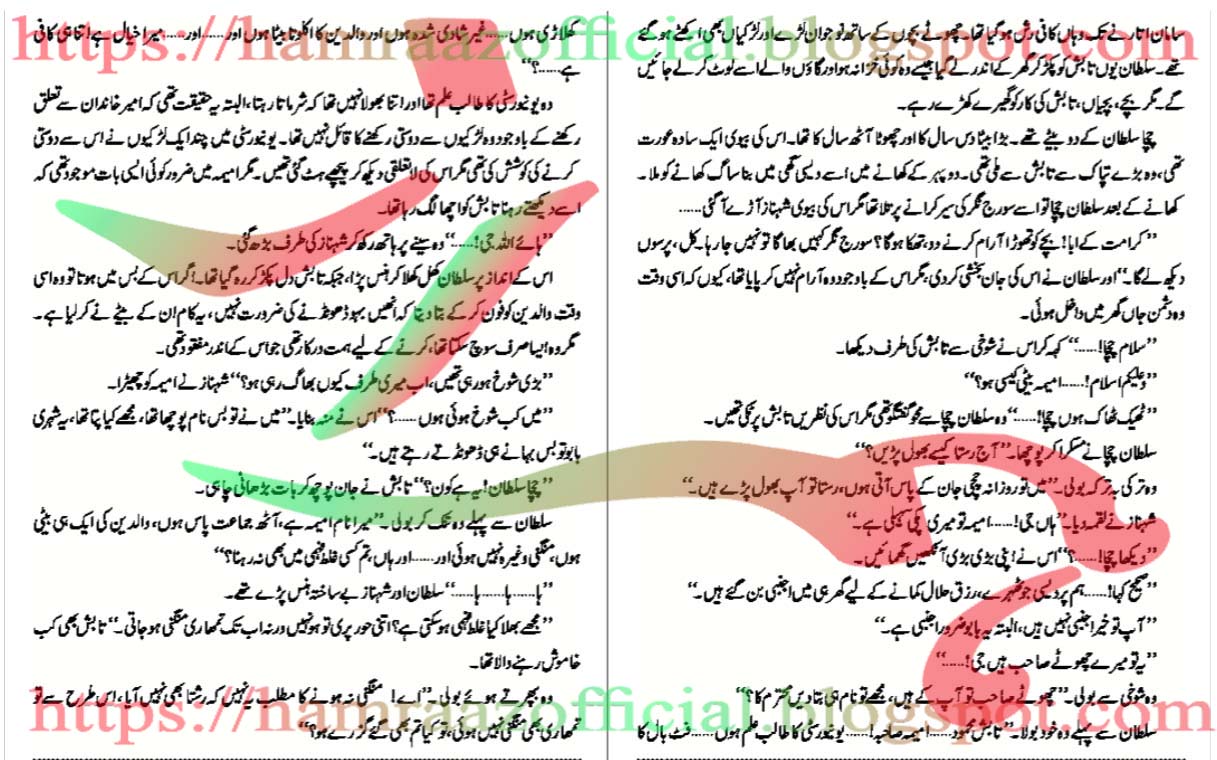 https://hamraazofficial.blogspot.com
سامان اتارنے تک وہاں کافی رش ہو گیا تھا۔ چھوٹے بچوں کے ساتھ نوجوان لڑکے اور لڑکیاں بھی اکٹھے ہو گئے
تھے۔ سلطان یوں تابش کو پکڑ کر گھر کے اندر لے گیا جیسے وہ کوئی خزانہ ہو اور گاؤں والے اسے لوٹ کر لے جائیں
گے۔ مگر بچے، بچیاں، تابش کی کار کو گھیرے کھڑے رہے۔
چچا سلطان کے دو بیٹے تھے۔ بڑا بیٹا دس سال کا اور چھوٹا آٹھ سال کا تھا۔ اس کی بیوی ایک سادہ عورت
تھی، وہ بڑے تپاک سے تابش سے ملی تھی۔ دوپہر کے کھانے میں اسے دیسی گھی میں بنا ساگ کھانے کو ملا۔
کھانے کے بعد سلطان چچا تو اسے سورج نگر کی سیر کرانے پر تلا تھا مگر اس کی بیوی شہناز آڑے آ گئی......
’’کرامت کے ابا! بچے کو تھوڑا آرام کرنے دو، تھکا ہوگا؟ سورج نگر کہیں بھاگا تو نہیں جا رہا۔ کل، پرسوں
دیکھ لے گا۔‘‘ اور سلطان نے اس کی جان بخشی کر دی، مگر اس کے باوجود وہ آرام نہیں کر پایا تھا، کیوں کہ اسی وقت
وہ دشمن جاں گھر میں داخل ہوئی۔
’’سلام چچا!......‘‘ کہہ کر اس نے شوخی سے تابش کی طرف دیکھا۔
’’وعلیکم اسلام!......امیمہ بیٹی کیسی ہو؟‘‘
’’ٹھیک ٹھاک ہوں چچا!......‘‘ وہ سلطان چچا سے محو گفتگو تھی مگر اس کی نظریں تابش پر ٹکی تھیں۔
سلطان چچا نے مسکرا کر پوچھا۔ ’’آج رستا کیسے بھول پڑیں؟‘‘
وہ ترکی بہ ترکی بولی۔ ’’میں تو روزانہ چچی جان کے پاس آتی ہوں، رستا تو آپ بھول پڑے ہیں۔‘‘
شہناز نے لقمہ دیا۔ ’’ہاں جی!......امیمہ تو میری پکی سہیلی ہے۔‘‘
’’دیکھا چچا!......؟‘‘ اس نے اپنی بڑی بڑی آنکھیں گھمائیں۔
’’صحیح کہا!......ہم پردیسی جو ٹھہرے، رزق حلال کمانے کے لیے گھر ہی میں اجنبی بن گئے ہیں۔‘‘
’’آپ تو خیر اجنبی نہیں ہیں، البتہ یہ بابو ضرور اجنبی ہے۔‘‘
’’یہ تو میرے چھوٹے صاحب ہیں جی!......‘‘
وہ شوخی سے بولی۔ ’’چھوٹے صاحب تو آپ کے ہیں، مجھے تو نام ہی بتا دیں محترم کا؟‘‘
سلطان سے پہلے وہ خود بولا۔ ’’تابش محمود......امیمہ صاحبہ!......یونیورسٹی کا طالب علم ہوں......فٹ بال کا
کھلاڑی ہوں......غیر شادی شدہ ہوں اور والدین کا اکلوتا بیٹا ہوں اور......اور......میرا خیال ہے اتنا ہی کافی
ہے......؟‘‘
وہ یونیورسٹی کا طالب علم تھا اور اتنا بھولا نہیں تھا کہ شرماتا رہتا، البتہ یہ حقیقت تھی کہ امیر خاندان سے تعلق
رکھنے کے باوجود وہ لڑکیوں سے دوستی رکھنے کا قائل نہیں تھا۔ یونیورسٹی میں چند ایک لڑکیوں نے اس سے دوستی
کرنے کی کوشش کی تھی مگر اس کی لاتعلقی دیکھ کر پیچھے ہٹ گئی تھیں۔ مگر امیمہ میں ضرور کوئی ایسی بات موجود تھی کہ
اسے دیکھتے رہنا تابش کو اچھا لگ رہا تھا۔
’’ہائے اللہ جی!......‘‘ وہ سینے پر ہاتھ رکھ کر شہناز کی طرف بڑھ گئی۔
اس کے انداز پر سلطان کھل کھلا کر ہنس پڑا، جبکہ تابش دل پکڑ کر رہ گیا تھا۔ اگر اس کے بس میں ہوتا تو وہ اسی
وقت والدین کو فون کر کے بتا دیتا کہ انھیں بہو ڈھونڈنے کی ضرورت نہیں، یہ کام ان کے بیٹے نے کر لیا ہے۔
مگر وہ ایسا صرف سوچ سکتا تھا، کرنے کے لیے ہمت درکار تھی جو اس کے اندر مفقود تھی۔
’’بڑی شوخ ہو رہی تھیں، اب میری طرف کیوں بھاگ رہی ہو؟‘‘ شہناز نے امیمہ کو چھیڑا۔
’’میں کب شوخ ہوئی ہوں......؟‘‘ اس نے منہ بنایا۔ ’’میں نے تو بس نام پوچھا تھا، مجھے کیا پتا تھا، یہ شہری
بابو تو بس بہانے ہی ڈھونڈتے رہتے ہیں۔‘‘
’’چچا سلطان! یہ ہے کون؟‘‘ تابش نے جان پوچھ کر بات بڑھانی چاہی۔
سلطان سے پہلے وہ تنک کر بولی۔ ’’میرا نام امیمہ ہے، آٹھ جماعت پاس ہوں، والدین کی ایک ہی بیٹی
ہوں، منگنی وغیرہ نہیں ہوئی اور......اور ہاں، تم کسی غلط فہمی میں بھی نہ رہنا؟‘‘
’’ہا......ہا......ہا......‘‘ سلطان اور شہناز بے ساختہ ہنس پڑے تھے۔
’’مجھے بھلا کیا غلط فہمی ہو سکتی ہے؟ اتنی حور پری تو ہو نہیں ورنہ اب تک تمھاری منگنی ہو جاتی۔‘‘ تابش بھی کب
خاموش رہنے والا تھا۔
وہ بپھرتے ہوئے بولی۔ ’’اے! منگنی نہ ہونے کا مطلب یہ نہیں کہ رشتا بھی نہیں آیا، اس طرح سے تو
تمھاری بھی منگنی نہیں ہوئی، تو کیا تم بھی گئے گزرے ہو؟
https://hamraazofficial.blogspot.com